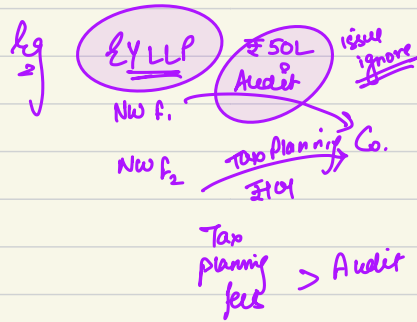 Eg
EY LLP
₹ 50L
Audit
issue
ignore
NW F1
Co.
NW F2
Tax Planning
Tax
planning
fees > Audit